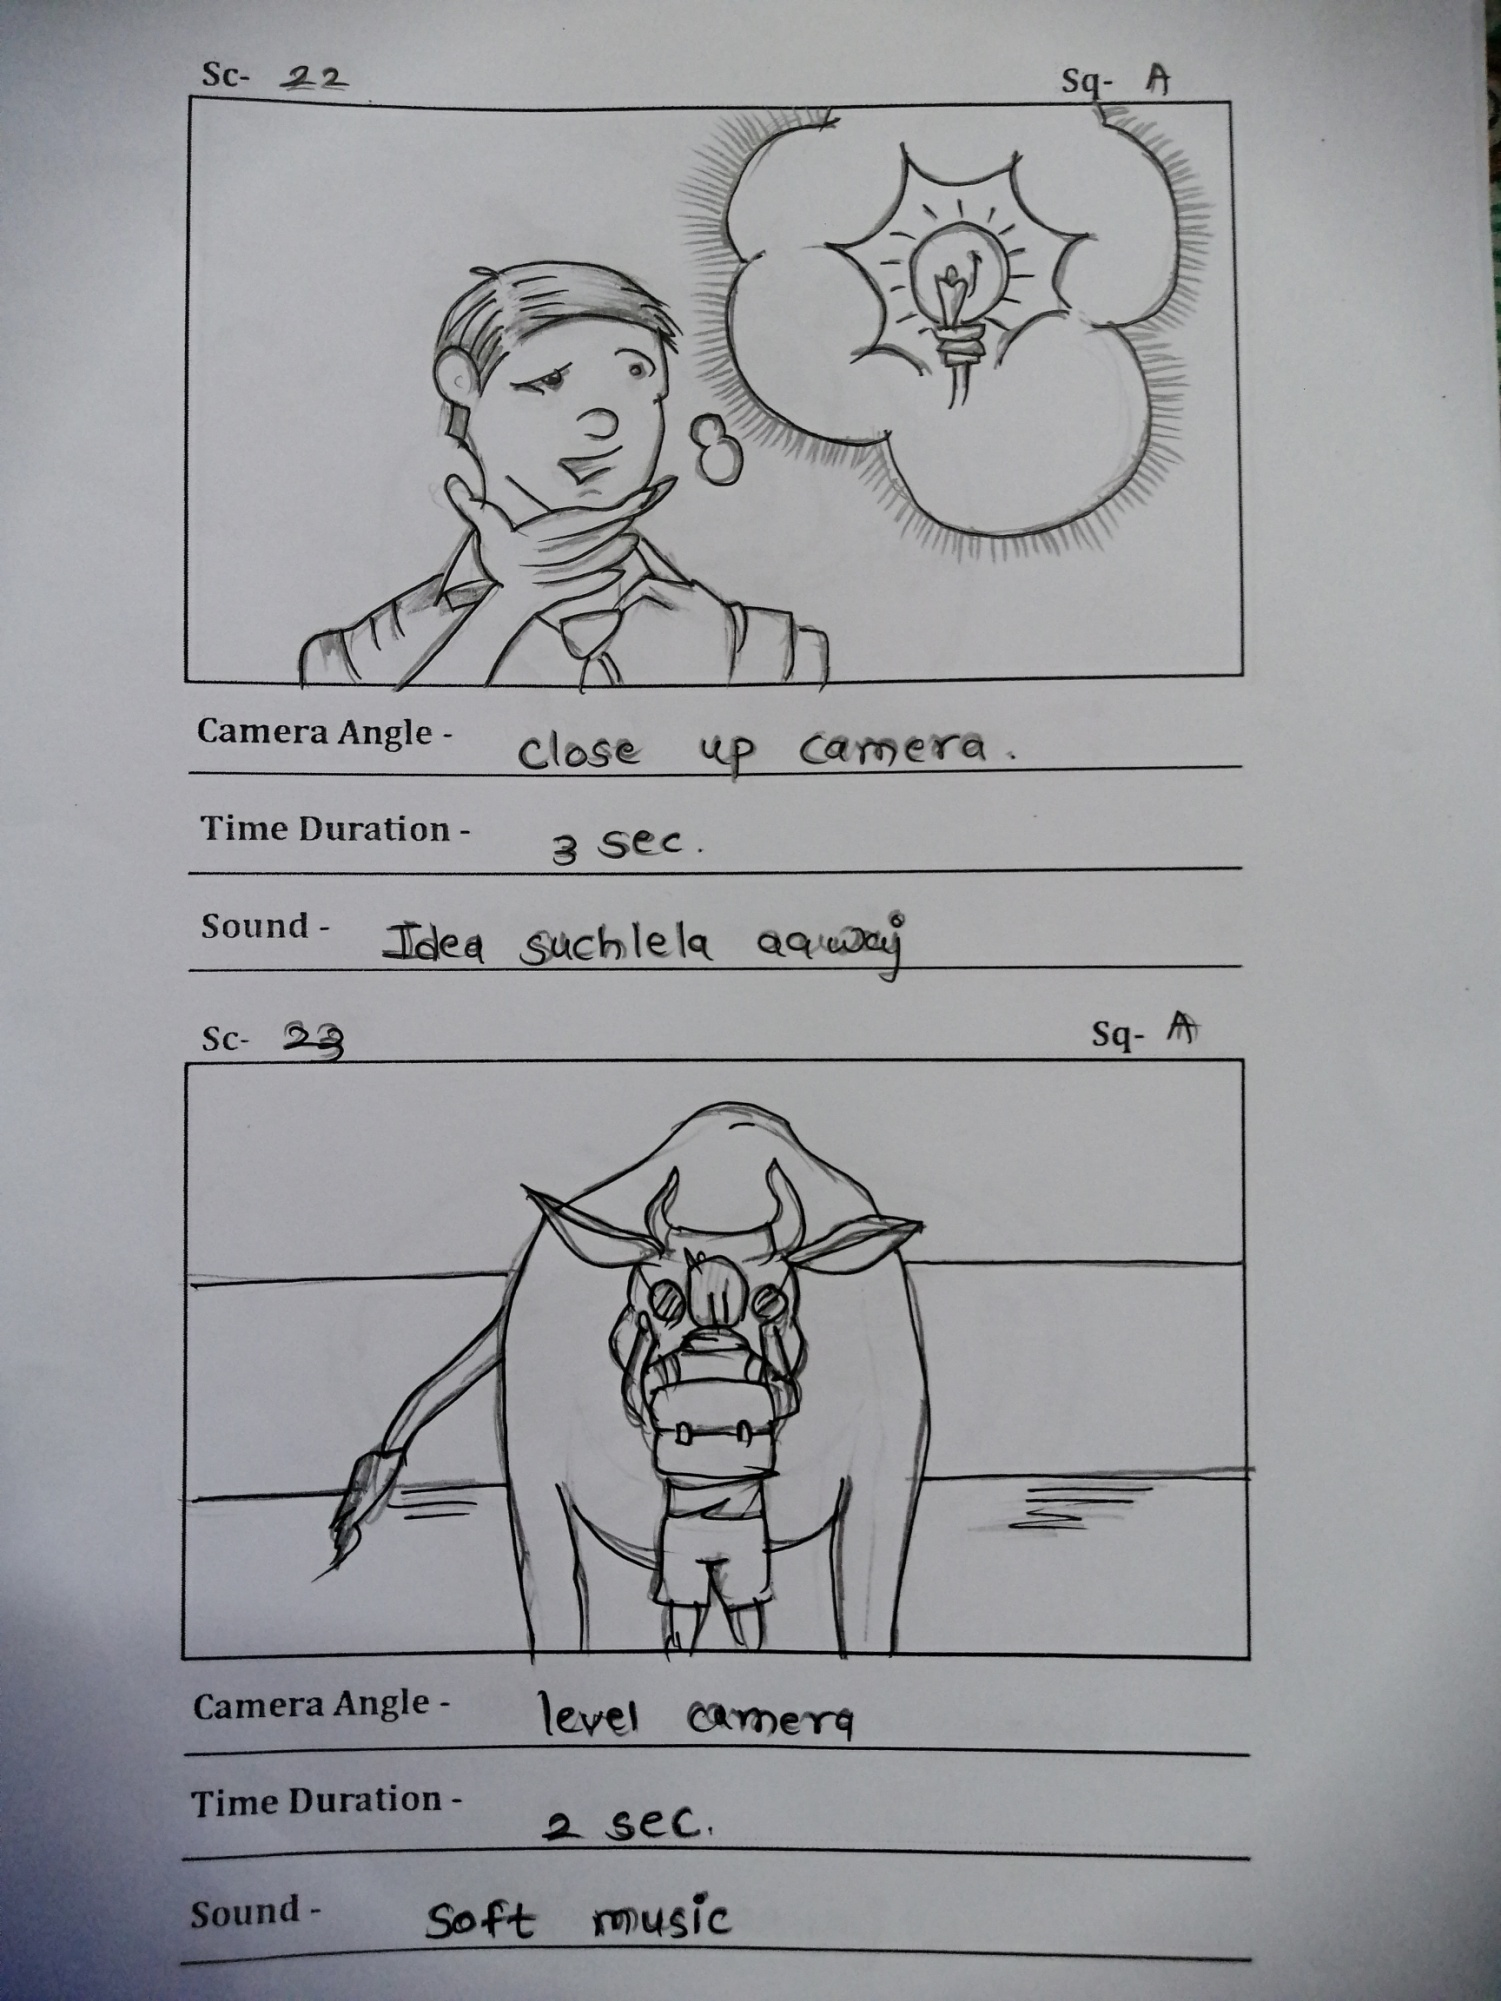 Sc- 22 Sq- A
Camera Angle - close up camera.
Time Duration - 3 sec.
Sound - Idea suchlela aawaj
Sc- 23 Sq- A
Camera Angle - level camera
Time Duration - 2 sec.
Sound - Soft music